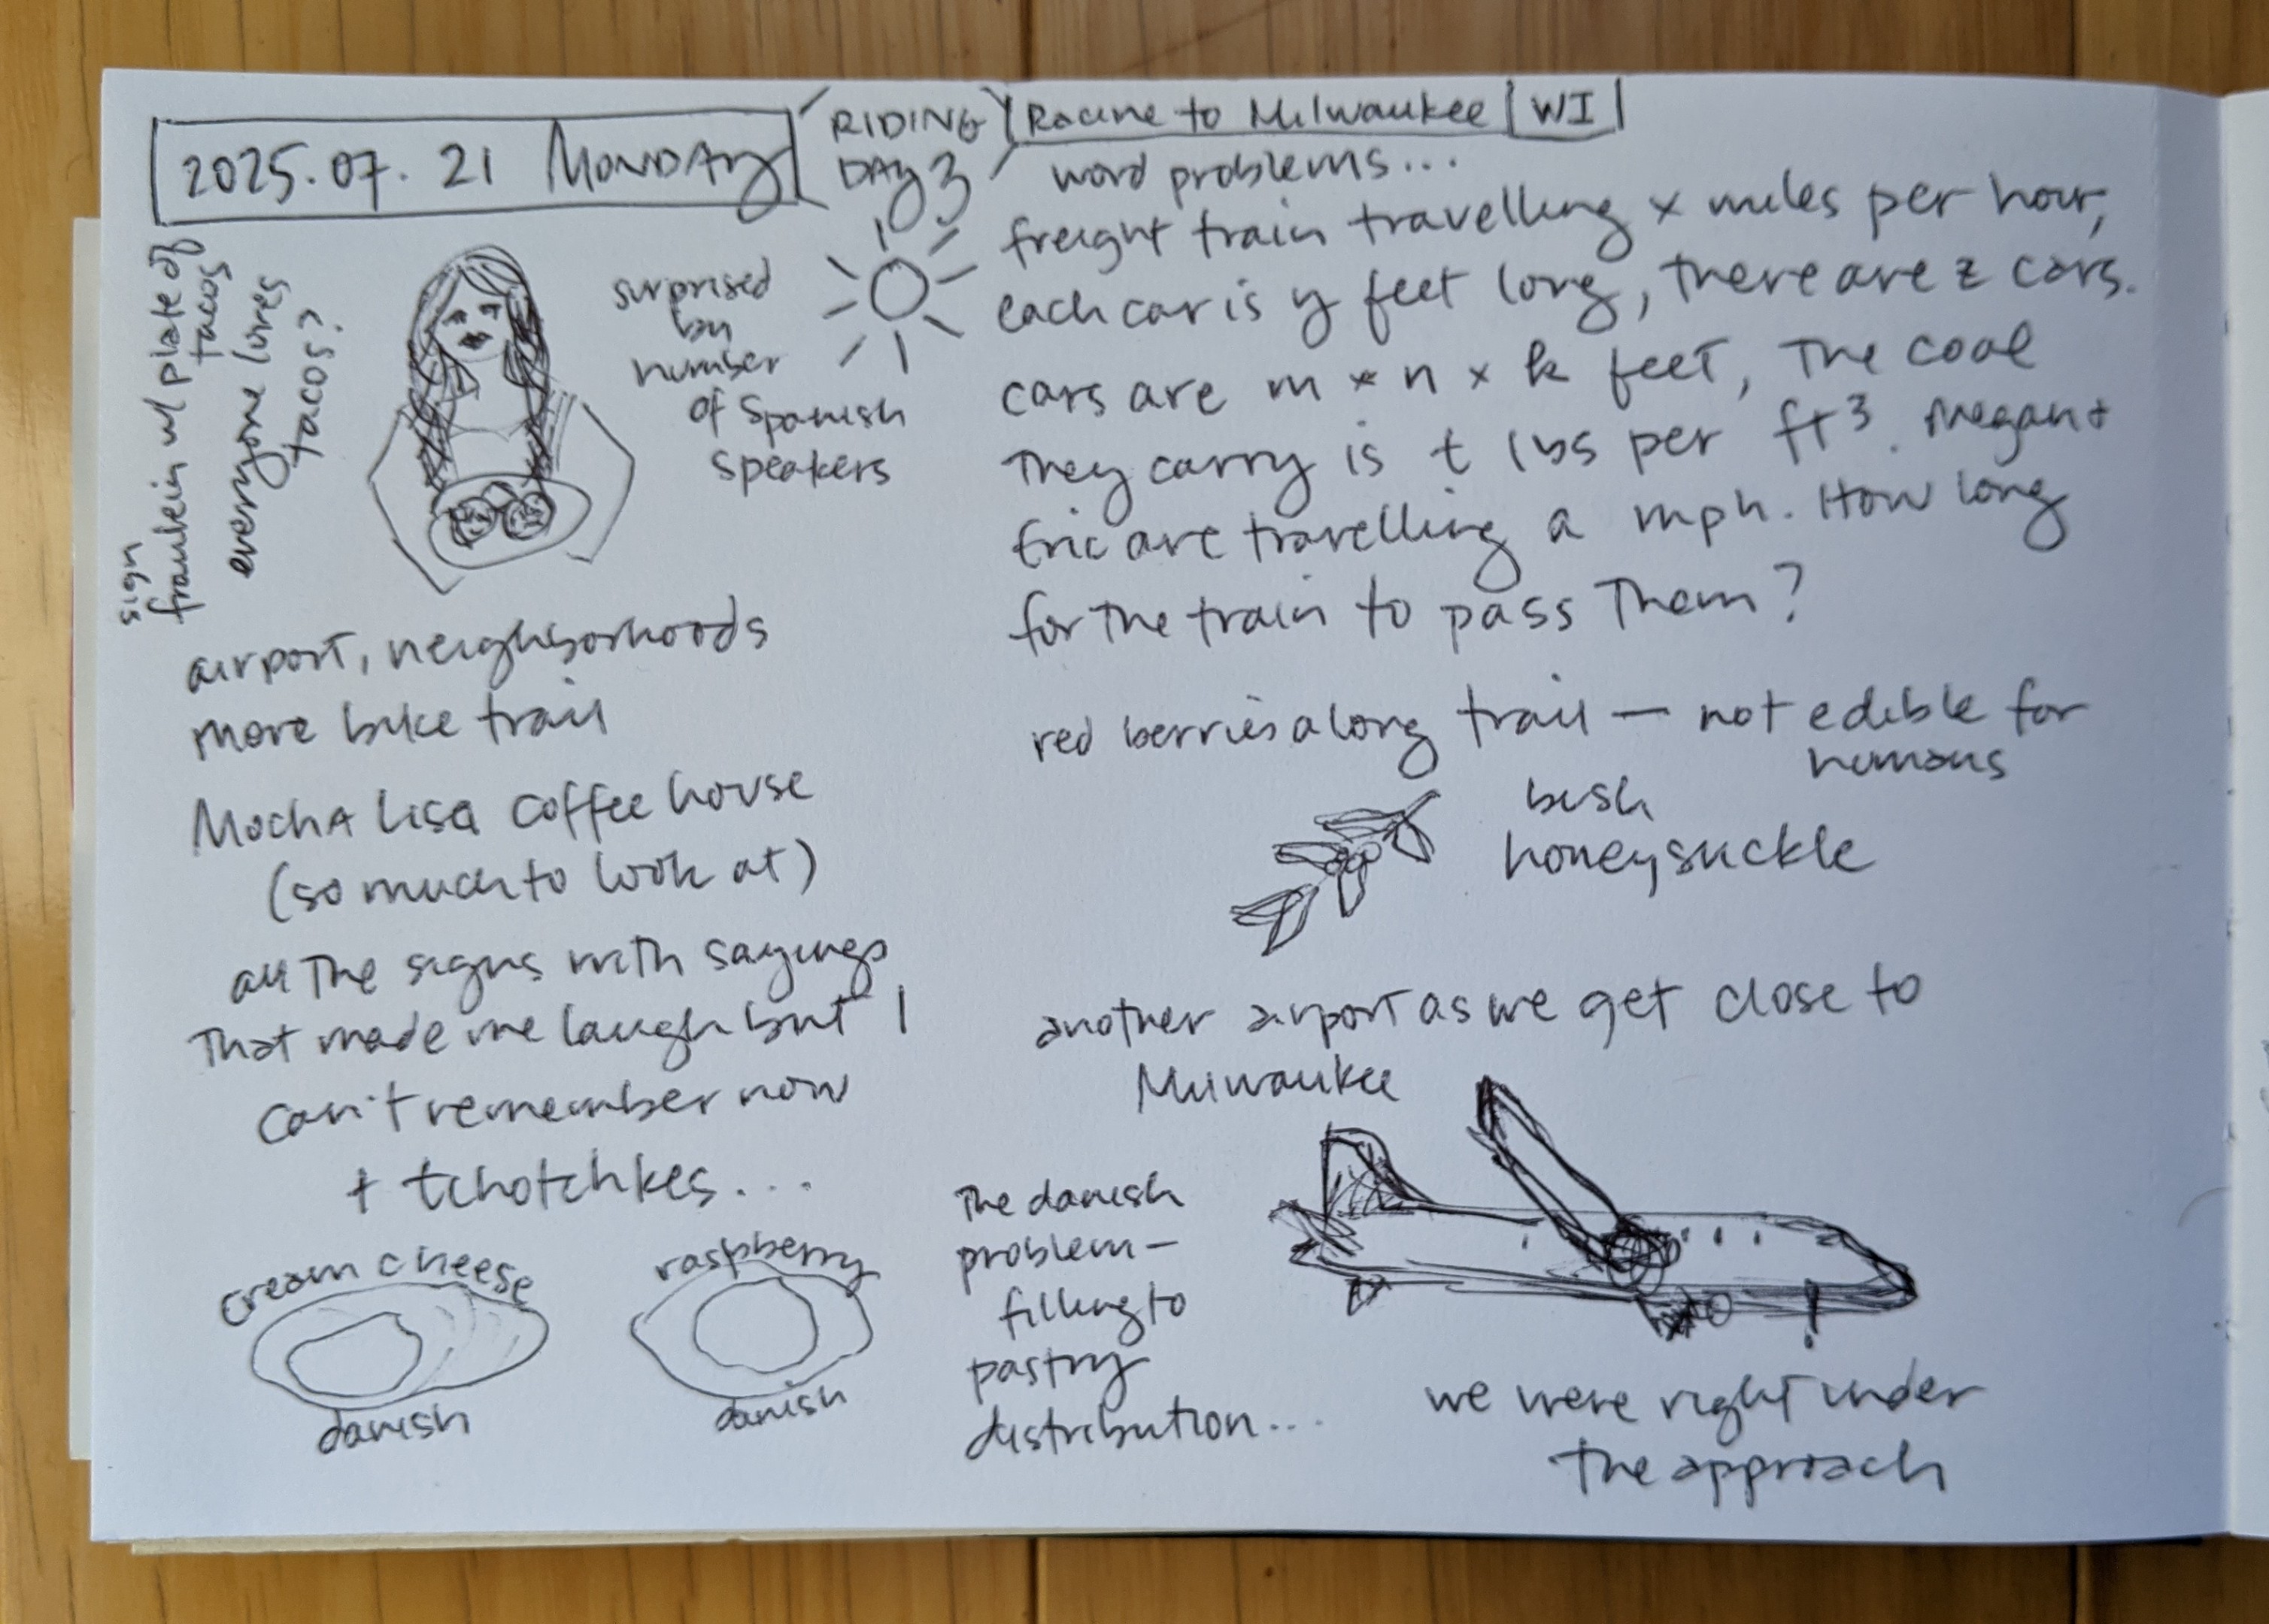 2025.07.21 Monday
RIDING
DAY 3
Racine to Milwaukee
WI
sign
fraulein w/ plate of
tacos
everyone loves
tacos?
surprised
by
number
of Spanish
speakers
airport, neighborhoods
more bike trail
Mocha Lisa Coffee house
(so much to look at)
all the signs with sayings
that made me laugh but I
can't remember now
+ tchotchkes...
cream cheese
danish
raspberry
danish
word problems...
freight train travelling x miles per hour,
each car is y feet long, there are z cars.
cars are m x n x k feet, the coal
they carry is t lbs per ft³. Megan +
Eric are travelling a mph. How long
for the train to pass them?
red berries along trail — not edible for
humans
bush
honeysuckle
another airport as we get close to
Milwaukee
The danish
problem —
filling to
pastry
distribution...
we were right under
the approach